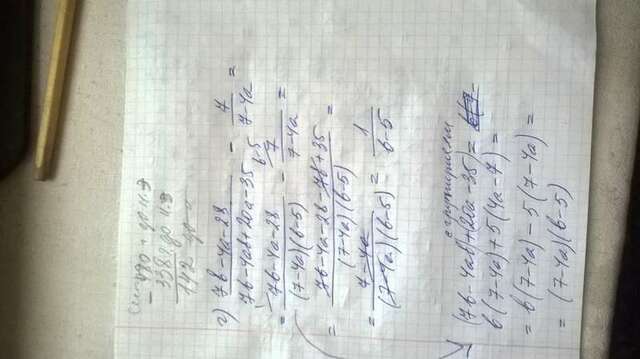 520 + до н.э
338 до н.э
г) (7b-4a-28)/(7b-4ab+20a-35) - 7/(7-4a) =
= (7b-4a-28)/((7-4a)(b-5)) - 7/(7-4a) =
= (7b-4a-28-7b+35)/((7-4a)(b-5)) =
= (7-4a)/((7-4a)(b-5)) = 1/(b-5)
(7b-4ab+20a-35) =
b(7-4a)+5(4a-7) =
= b(7-4a)-5(7-4a) =
= (7-4a)(b-5)